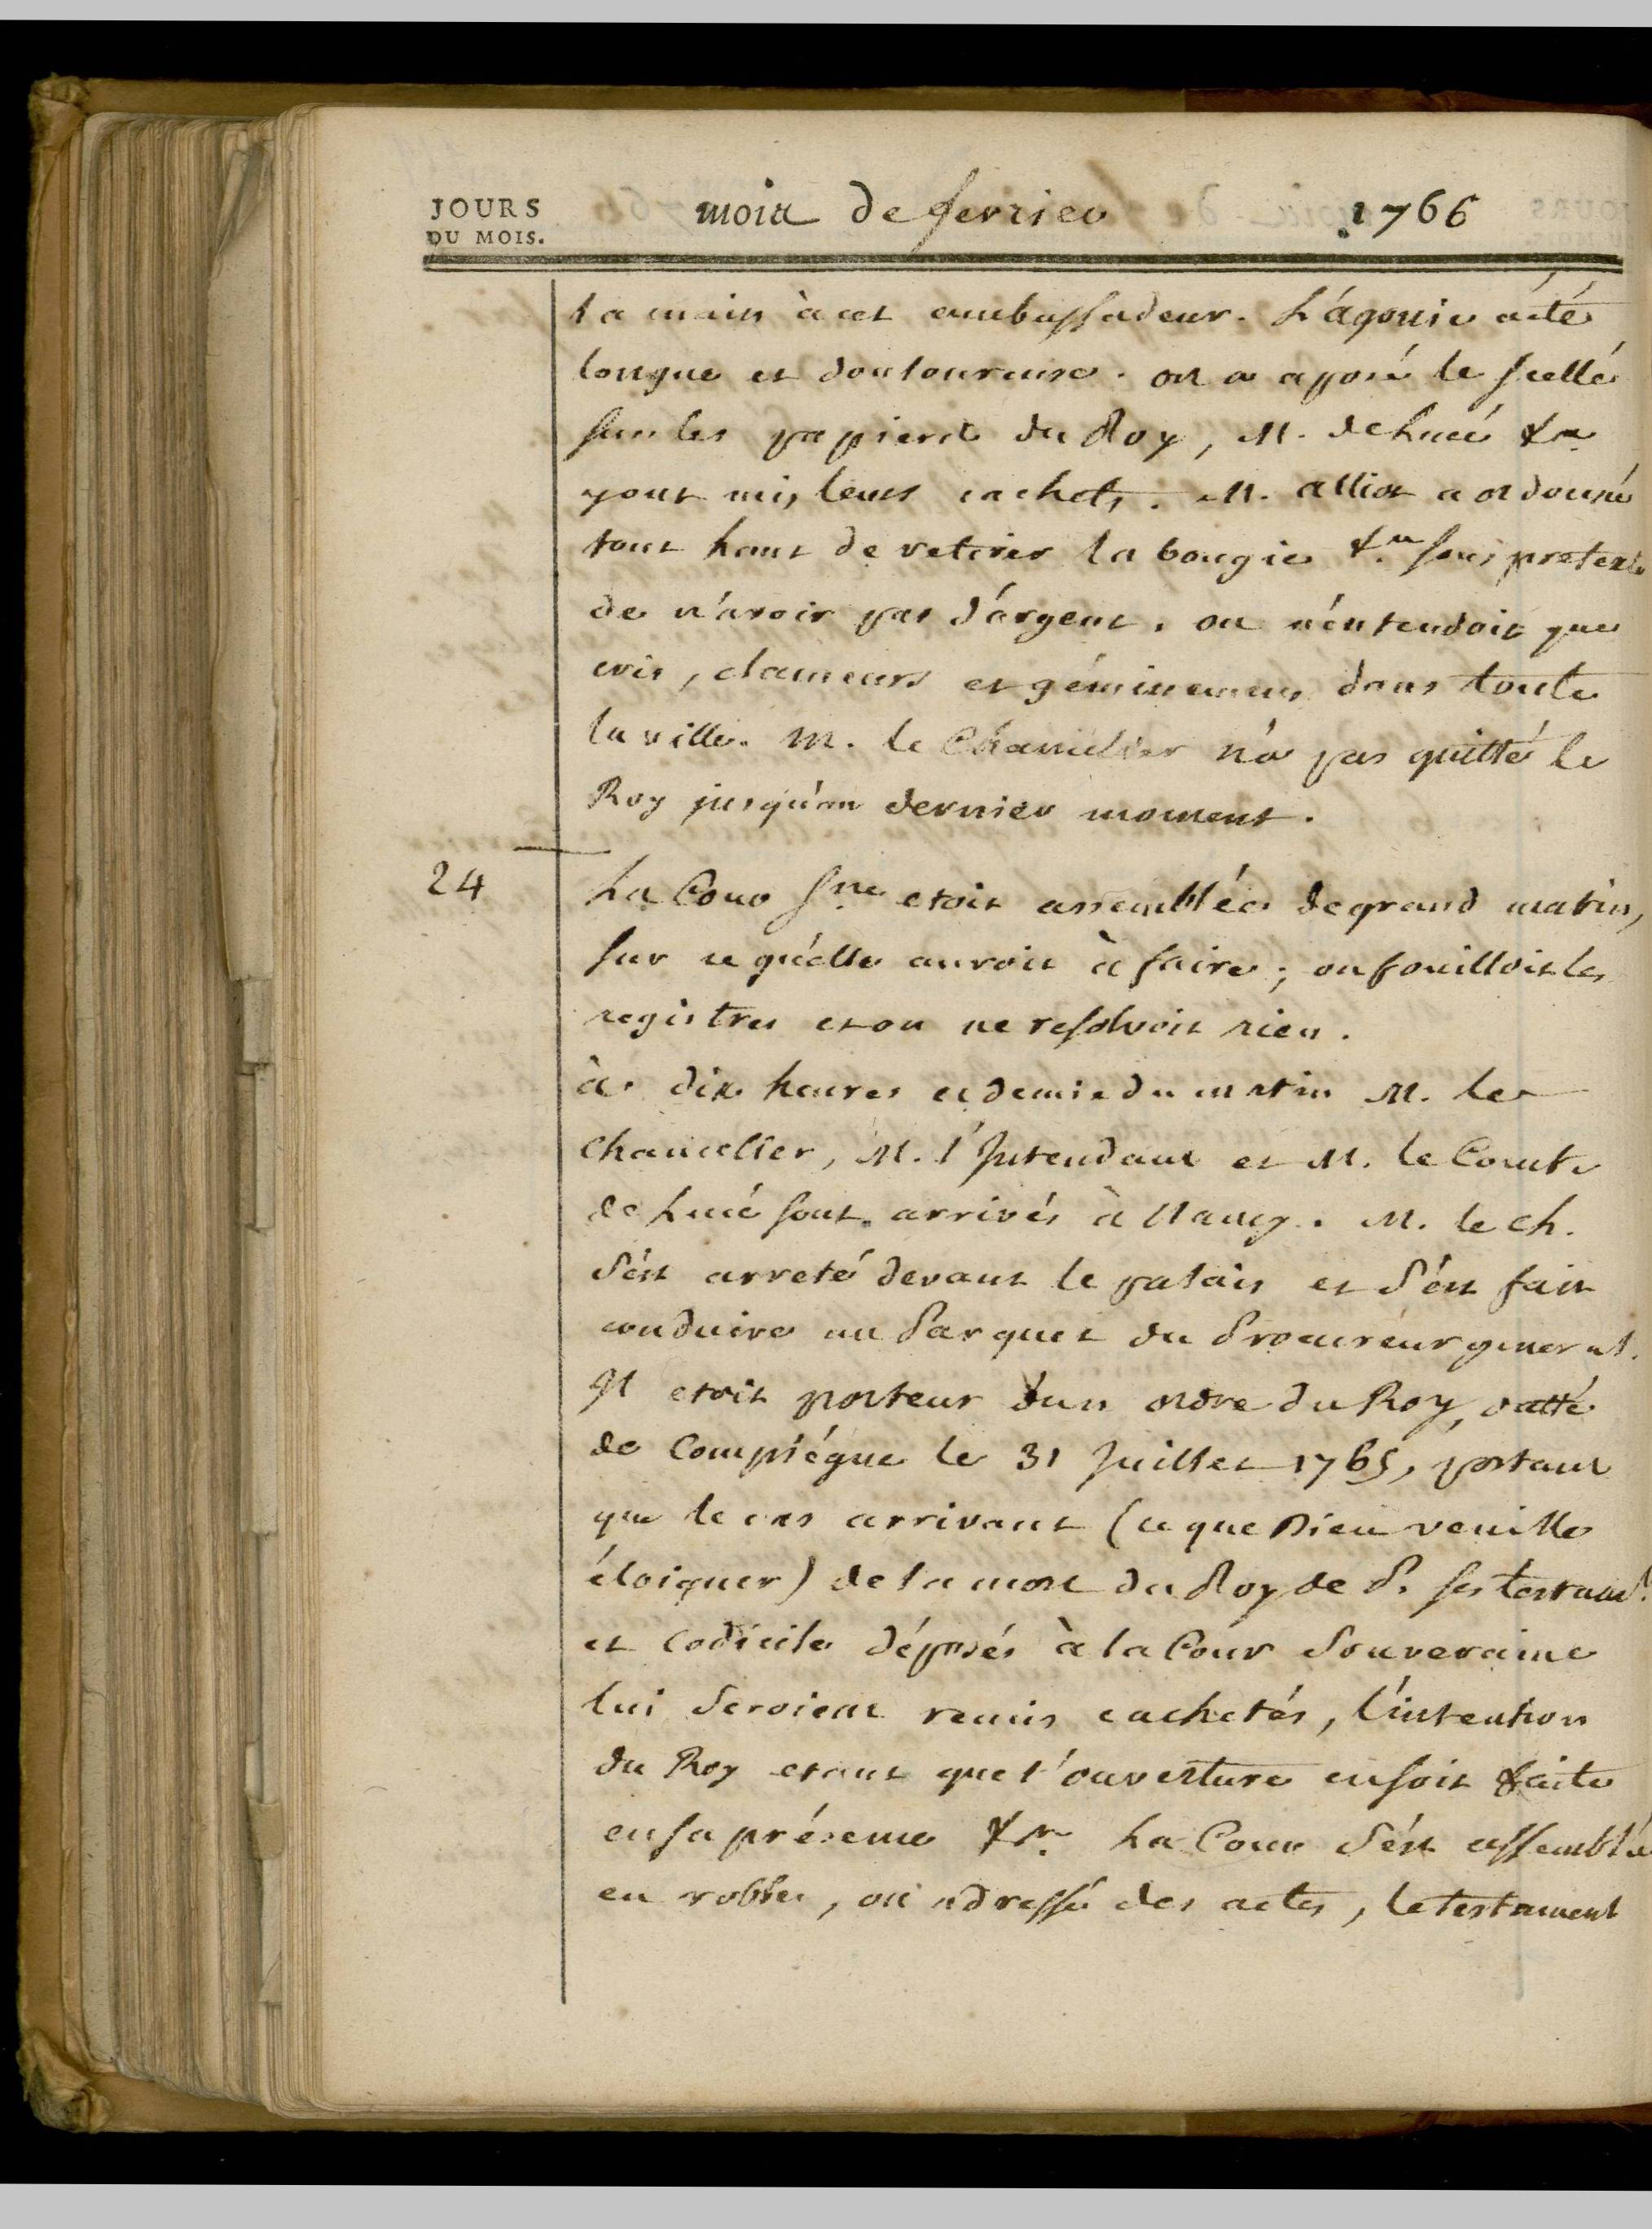 JOURS
DU MOIS.
mois de fevrier 1766
la main à cet ambassadeur. L'ágonie a été
longue et douloureuse. on a apposé le scellé
sur les papiers du Roy, M. de Lucé &a
y ont mis leurs cachets. M. alliot a ordonné
tout haut de retirer la bougie &a sous pretexte
de n'avoir pas d'argent. on n'entendoit que
cris, clameurs et gémissemens dans toute
la ville. M. le Chancelier n'a pas quitté le
Roy jusqu'au dernier moment.
24
La Cour Sne etoit assemblée de grand matin,
sur ce qu'elle auroit à faire; on fouilloit les
registres et on ne resolvoit rien.
à dix heures et demie du matin M. le
Chancelier, M. l'Intendant et M. le Comte
de Lucé sont arrivés à Nancy. M. le ch.
s'est arreté devant le palais et s'est fait
conduire au Parquet du Procureur general.
Il etoit porteur d'un ordre du Roy, datté
de Compiégne le 31 Juillet 1765, portant
que le cas arrivant (ce que Dieu veuille
éloigner) de la mort du Roy de P. ses testamt.
et codicile déposés à la Cour Souveraine
lui seroient remis cachetés, l'intention
du Roy etant que l'ouverture en soit faite
en sa présence &a. La Cour s'est assemblée
en robbes, on a dressé des actes, le testament